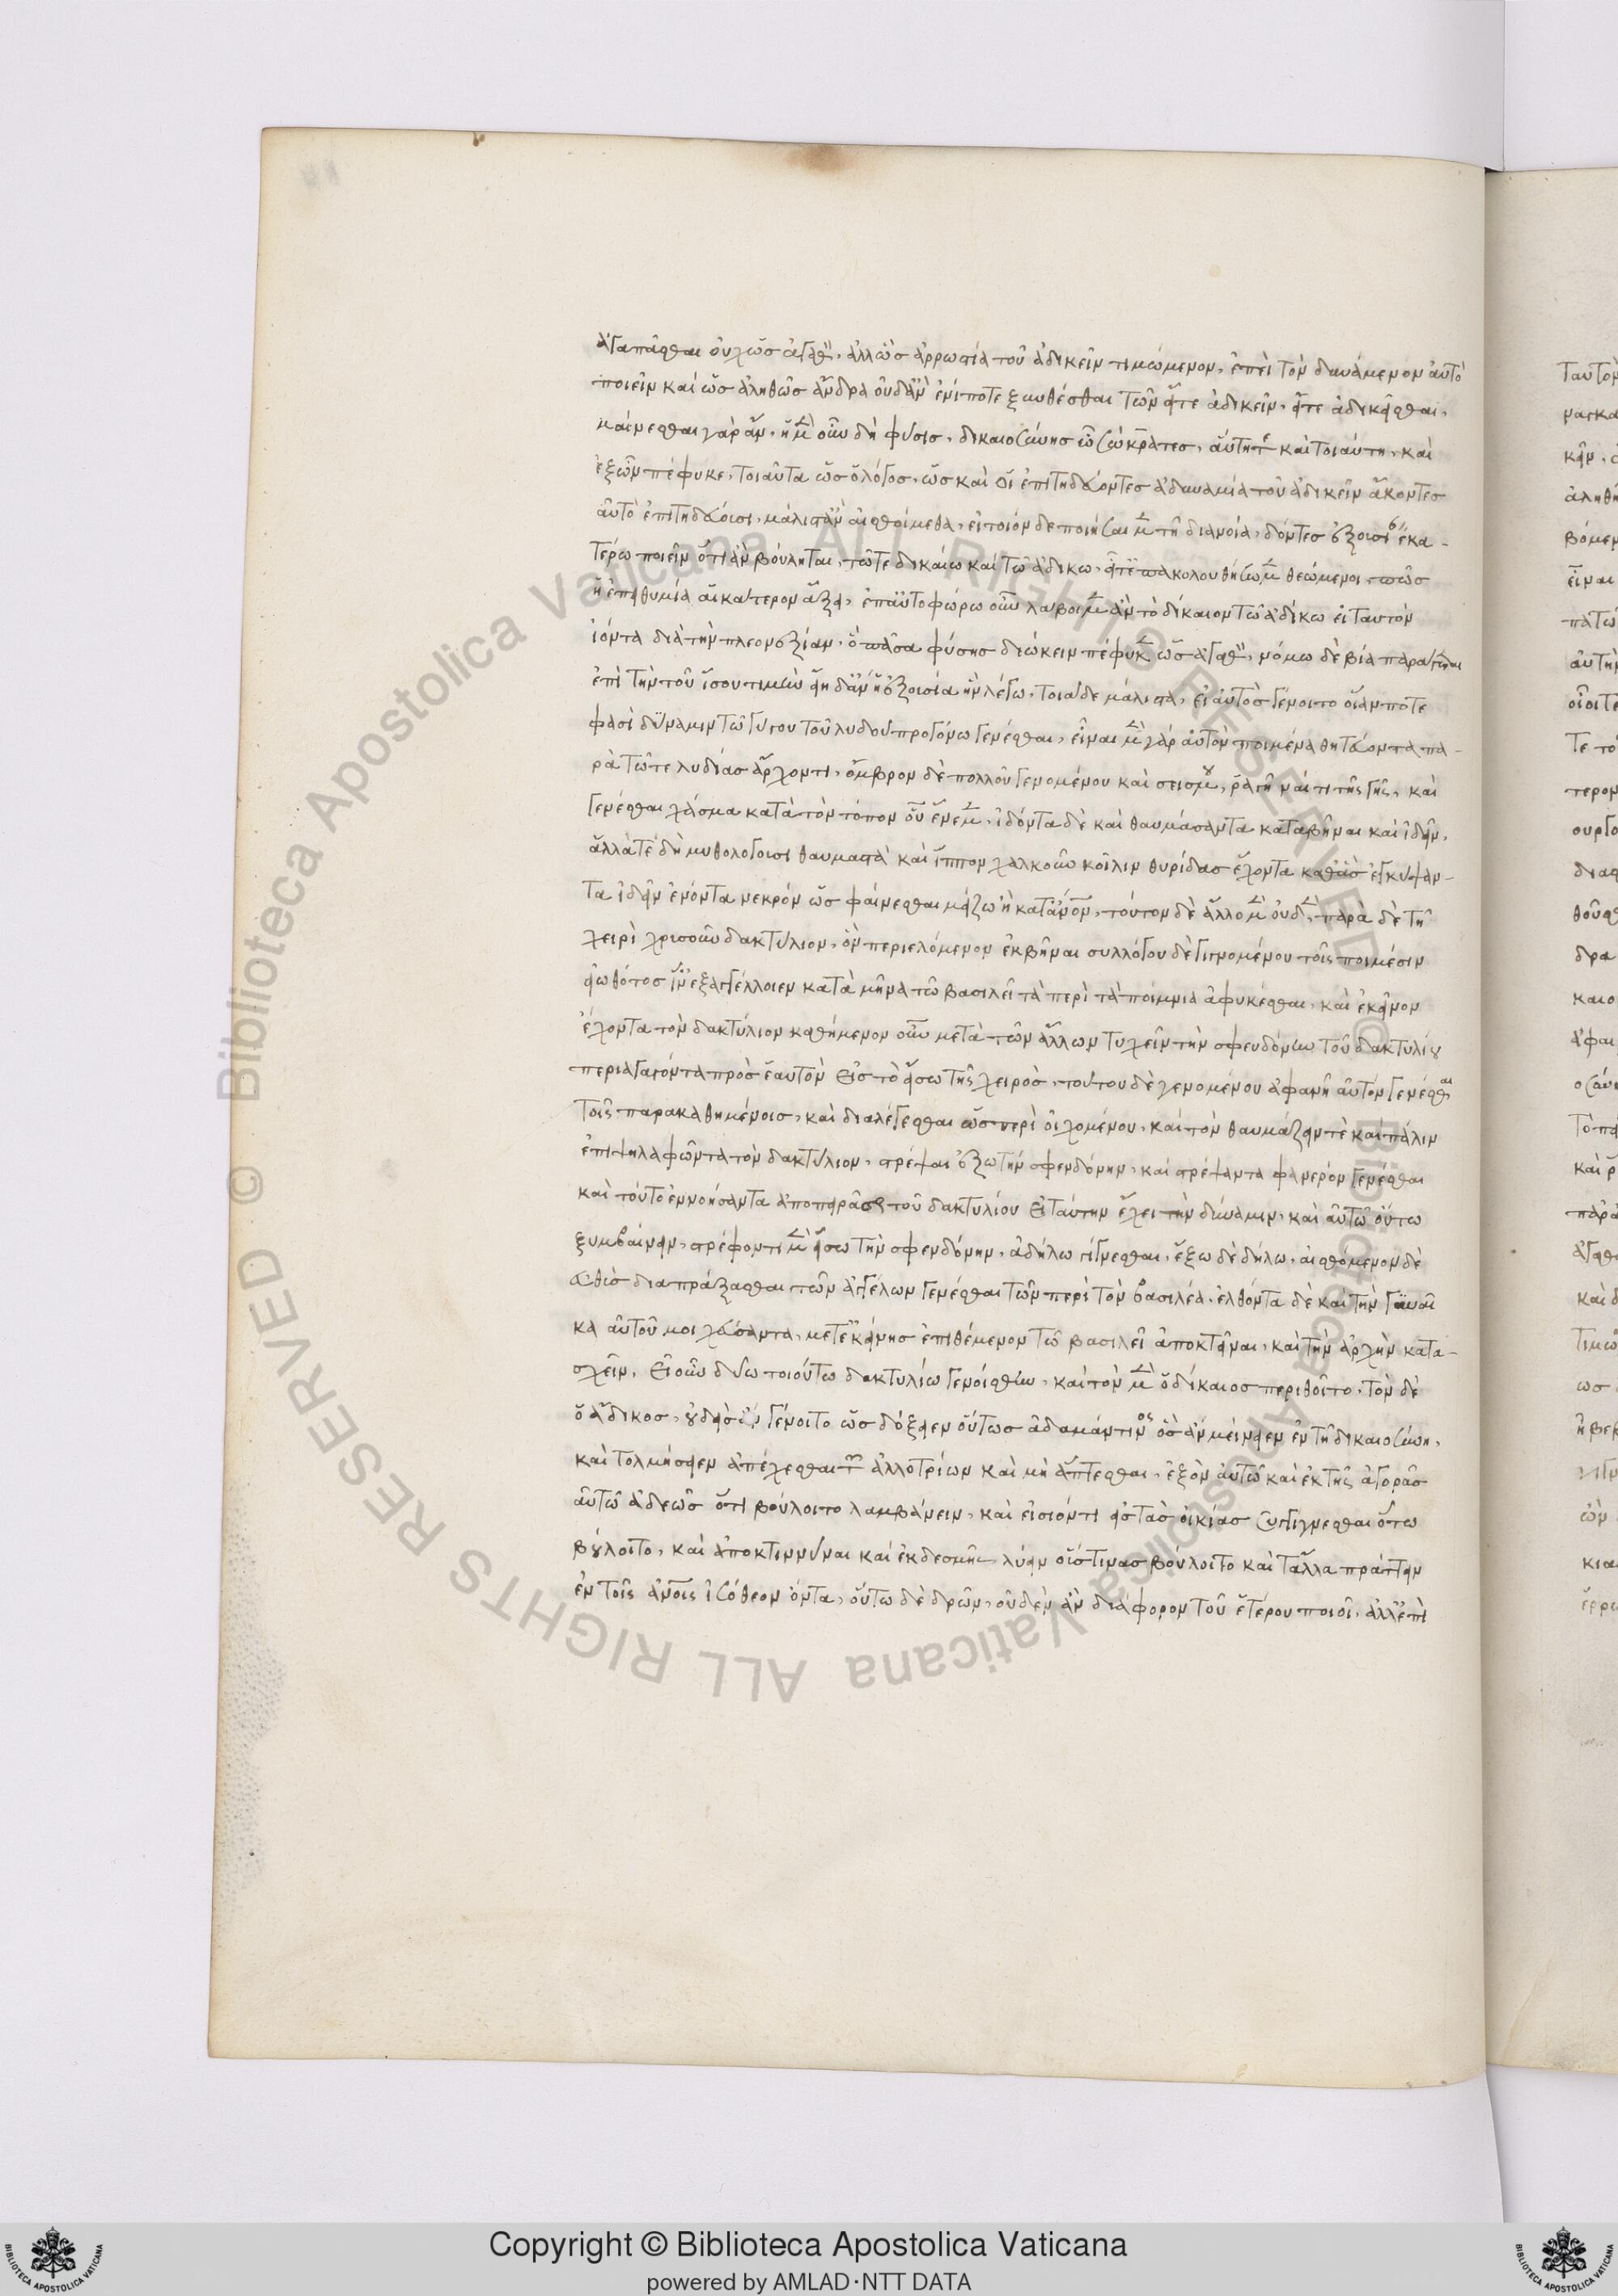 ἀγαπᾶσθαι οὐχ ὡς ἀγαθὸν, ἀλλ' ὡς ἀρρωστία τοῦ ἀδικεῖν τιμώμενον, ἐπεὶ τὸν δυνάμενον αὐτὸ
ποιεῖν καὶ ὡς ἀληθῶς ἄνδρα οὐδ' ἂν ἑνί ποτε ξυνθέσθαι τῶν εἴτε ἀδικεῖν, εἴτε ἀδικεῖσθαι,
μαίνεσθαι γὰρ ἄν, ἡ μὲν οὖν δὴ φύσις, δικαιοσύνης ὦ σώκρατες, αὕτη τε καὶ τοιαύτη, καὶ
ἐξ ὧν πέφυκε, τοιαῦτα ὡς ὁ λόγος. ὡς καὶ οἱ ἐπιτηδεύοντες ἀδυναμία τοῦ ἀδικεῖν ἄκοντες
αὐτὸ ἐπιτηδεύουσι, μάλιστ' ἂν αἰσθοίμεθα, εἰ τοιόνδε ποιήσαιμεν τῇ διανοία, δόντες ἐξουσίαν ἑκα-
τέρω ποιεῖν ὅτι ἂν βούληται, τῶ τε δικαίω καὶ τῶ ἀδίκω, εἶτ' ἐπακολουθήσαιμεν θεώμενοι πῶς
ἡ ἐπιθυμία ἑκάτερον ἄξει, ἐπ' αὐτοφώρω οὖν λάβοιμεν ἂν τὸ δίκαιον τῶ ἀδίκω εἰ ταυτὸν
ἰόντα διὰ τὴν πλεονεξίαν. ὃ πᾶσα φύσης διώκειν πέφυκεν ὡς ἀγαθὸν, νόμω δὲ βία παράγεται
ἐπὶ τὴν τοῦ ἴσου τιμὴν εἴη δ' ἂν ἡ ἐξουσία ἣν λέγω, τοιάδε μάλιστα, εἰ αὐτοῖς γένοιτο οἵαν ποτε
φασὶ δύναμιν τῶ γύγου τοῦ λυδοῦ προγόνω γενέσθαι, εἶναι μὲν γὰρ αὐτὸν ποιμένα θητεύοντα πα-
ρὰ τῶ τε λυδίας ἄρχοντι, ὄμβρον δὲ πολλοῦ γενομένου καὶ σεισμοῦ, ῥαγῆναί τι τῆς γῆς, καὶ
γενέσθαι χάσμα κατὰ τὸν τόπον οὗ ἔνεμεν, ἰδόντα δὲ καὶ θαυμάσαντα καταβῆναι καὶ ἰδεῖν,
ἄλλα τε δὴ μυθολογοῦσι θαυμαστὰ καὶ ἵππον χαλκοῦν κοῖλιν θυρίδας ἔχοντα καθ' ἃς ἐγκύψαν-
τα ἰδεῖν ἐνόντα νεκρόν ὡς φαίνεσθαι μείζω ἢ κατ' ἄνον, τούτον δὲ ἄλλο μὲν οὐδὲν, παρὰ δὲ τῇ
χειρὶ χρυσοῦν δακτύλιον, ὃν περιελόμενον ἐκβῆναι συλλόγου δὲ γιγνομένου τοῖς ποιμέσιν
εἰωθότος ἵν' ἐξαγγέλλοιεν κατὰ μῆνα τῶ βασιλεῖ τὰ περὶ τὰ ποίμνια ἀφικέσθαι, καὶ ἐκεῖνον
ἔχοντα τὸν δακτύλιον καθήμενον οὖν μετὰ τῶν ἄλλων τυχεῖν τὴν σφενδόνην τοῦ δακτυλίου
περιαγαγόντα πρὸς ἑαυτὸν εἰς τὸ εἴσω τῆς χειρός, τούτου δὲ γενομένου ἀφανῆ αὐτὸν γενέσθαι
τοῖς παρακαθημένοις, καὶ διαλέγεσθαι ὡς περὶ οἰχομένου, καὶ τὸν θαυμάζειν τὲ καὶ πάλιν
ἐπιψηλαφῶντα τὸν δακτύλιον, στρέψαι ἔξω τὴν σφενδόνην, καὶ στρέψαντα φανερὸν γενέσθαι
καὶ τοῦτο ἐννοήσαντα ἀποπειρᾶσθαι τοῦ δακτυλίου εἰ ταύτην ἔχει τὴν δύναμιν, καὶ αὐτῶ οὕτω
ξυμβαίνειν, στρέφοντι μὲν εἴσω τὴν σφενδόνην, ἀδήλω γίγνεσθαι, ἔξω δὲ δήλω, αἰσθόμενον δὲ
εὐθὺς διαπράξασθαι τῶν ἀγγέλων γενέσθαι τῶν περὶ τὸν βασιλέα, ἐλθόντα δὲ καὶ τὴν γυναῖ
κα αὐτοῦ μοιχεύσαντα, μετ' ἐκείνης ἐπιθέμενον τῶ βασιλεῖ ἀποκτεῖναι, καὶ τὴν ἀρχὴν κατα-
σχεῖν. εἰ οὖν δύω τοιούτω δακτυλίω γενοίσθην, καὶ τὸν μὲν ὁ δίκαιος περιθοῖτο, τὸν δὲ
ὁ ἄδικος, οὐδεὶς ἂν γένοιτο ὡς δόξειεν οὕτως ἀδαμάντινος ὃς ἂν μείνειεν ἐν τῇ δικαιοσύνη,
καὶ τολμήσειεν ἀπέχεσθαι τῶν ἀλλοτρίων καὶ μὴ ἅπτεσθαι, ἐξὸν αὐτῶ καὶ ἐκ τῆς ἀγορᾶς
αὐτῶ ἀδεῶς ὅτι βούλοιτο λαμβάνειν, καὶ εἰσιόντι εἰς τὰς οἰκίας συγγίγνεσθαι ὅτω
βούλοιτο, καὶ ἀποκτιννύναι καὶ ἐκ δεσμῶν λύειν οὕστινας βούλοιτο καὶ τἄλλα πράττειν
ἐν τοῖς ἀνοις ἰσόθεον ὄντα, οὕτω δὲ δρῶν, οὐδὲν ἂν διάφορον τοῦ ἑτέρου ποιοῖ, ἀλλ' ἐπὶ
Copyright © Biblioteca Apostolica Vaticana
powered by AMLAD·NTT DATA